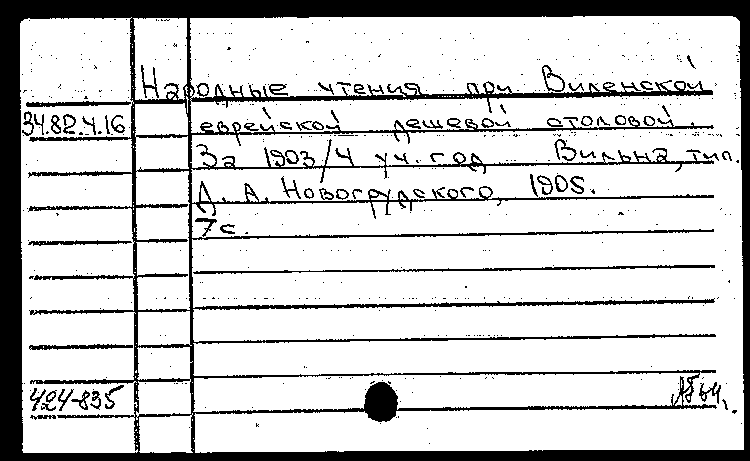 Народные чтения при Виленской
34.82.4.16 еврейской дешевой столовой.
За 1903/4 уч. год Вильна, тип.
А. Новогрудского, 1905.
7 с.
424-835